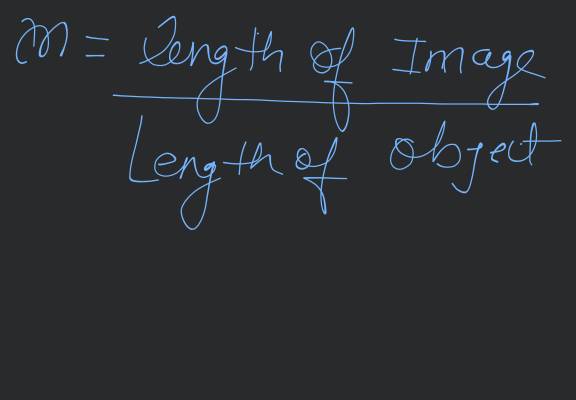 m = Length of Image
Length of Object